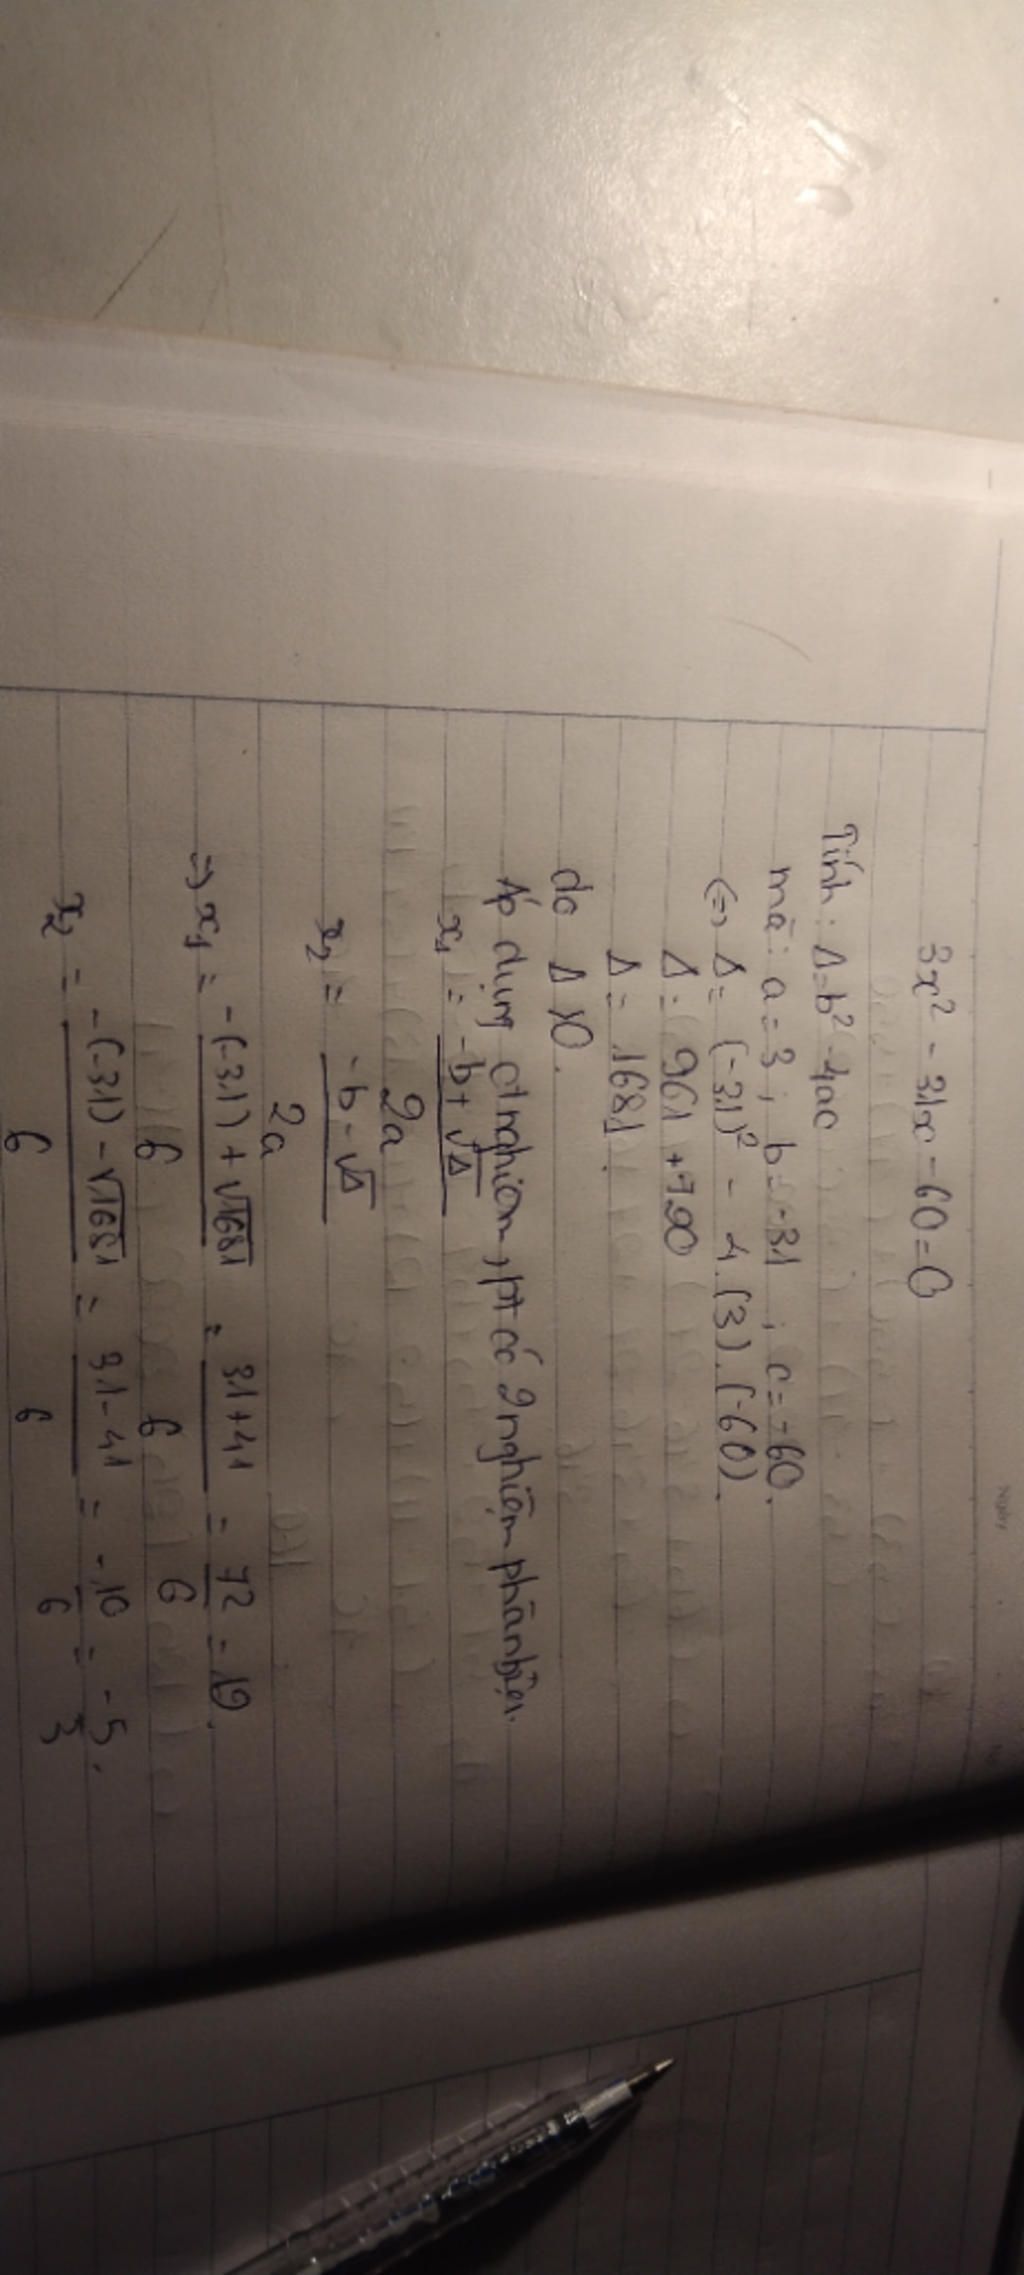 Ngày
3x² - 31x - 60 = 0
Tính: Δ = b² - 4ac
mà: a = 3 ; b = -31 ; c = -60.
(=) Δ = (-31)² - 4.(3).(-60).
Δ = 961 + 720
Δ = 1681.
do Δ > 0.
Áp dụng ct nghiệm, pt có 2 nghiệm phân biệt.
x₁ = \frac{-b + √Δ}{2a}
x₂ = \frac{-b - √Δ}{2a}
=> x₁ = \frac{-(-31) + √1681}{6} = \frac{31 + 41}{6} = \frac{72}{6} = 12.
x₂ = \frac{-(-31) - √1681}{6} = \frac{31 - 41}{6} = \frac{-10}{6} = \frac{-5}{3}.